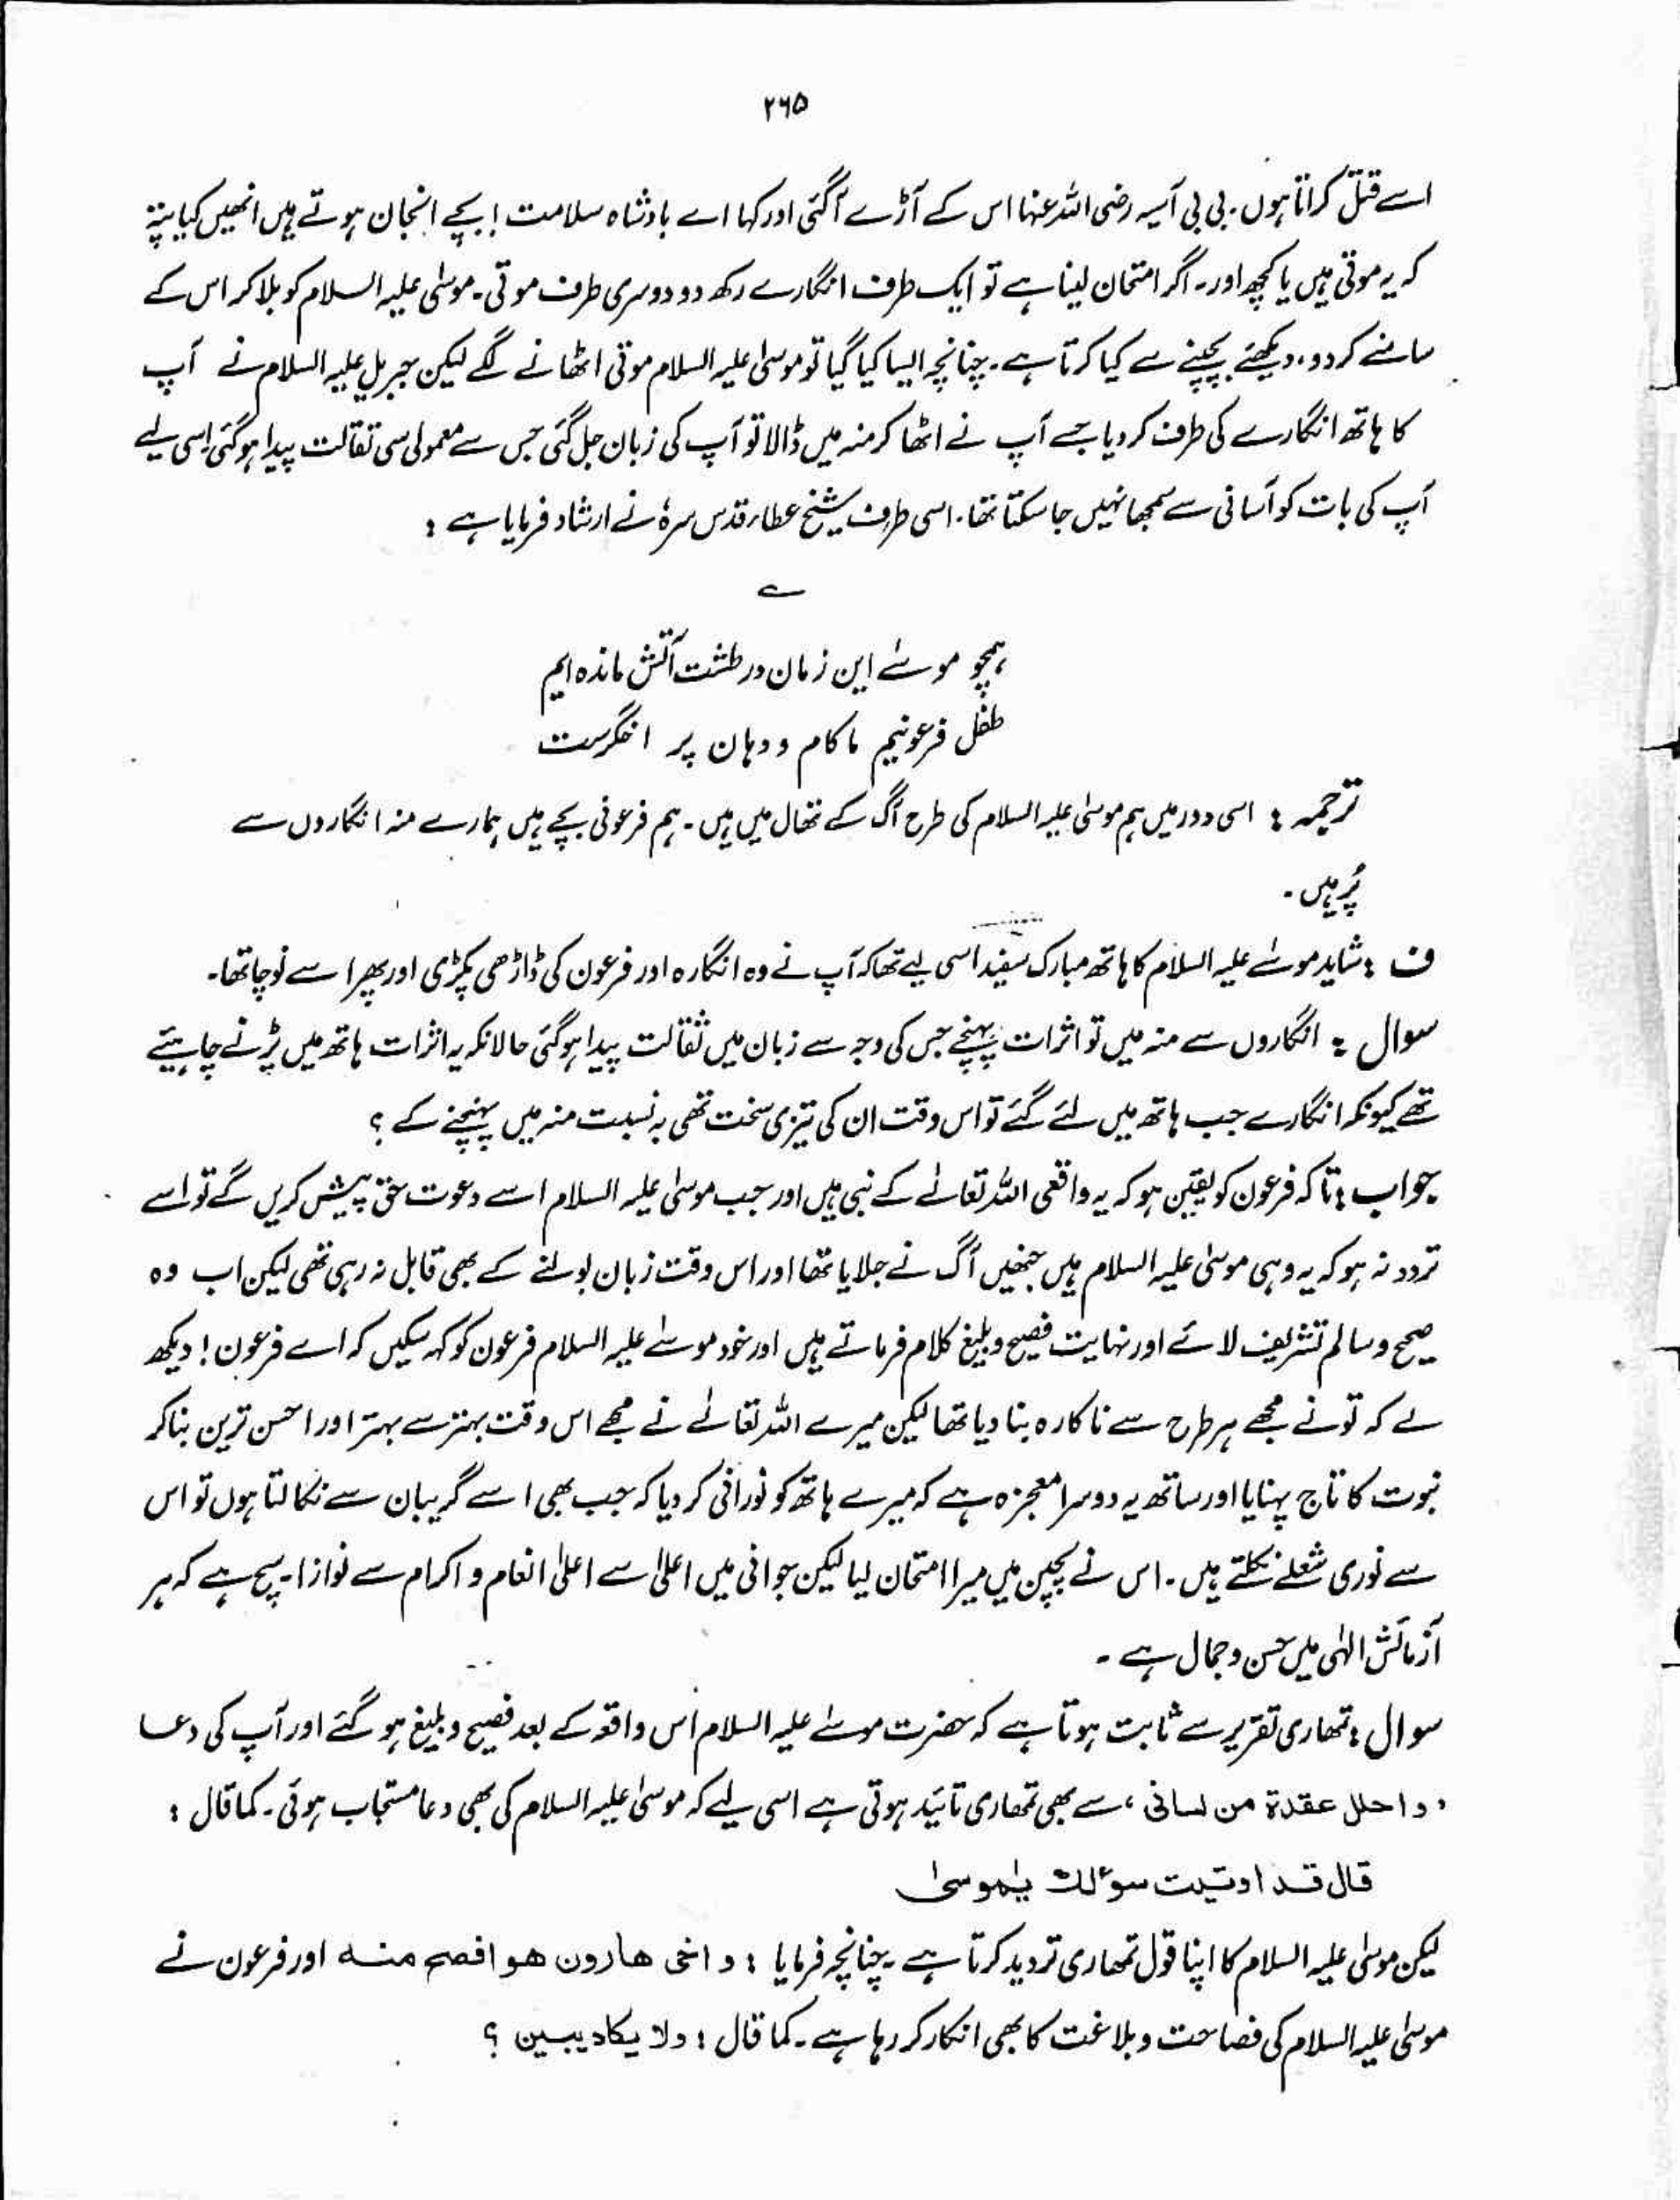 ۲۶۵
اسے قتل کراتا ہوں۔ بی بی آسیہ رضی اللہ عنہا اس کے آڑے آگئی اور کہا اے بادشاہ سلامت! بچے انجان ہوتے ہیں انھیں کیا پتہ
کہ یہ موتی ہیں یا کچھ اور۔ اگر امتحان لینا ہے تو ایک طرف انگارے رکھ دو دوسری طرف موتی۔ موسیٰ علیہ السلام کو بلا کر اس کے
سامنے کر دو، دیکھئے بچپنے سے کیا کرتا ہے۔ چنانچہ ایسا کیا گیا تو موسیٰ علیہ السلام موتی اٹھانے لگے لیکن جبریل علیہ السلام نے آپ
کا ہاتھ انگارے کی طرف کر دیا جسے آپ نے اٹھا کر منہ میں ڈالا تو آپ کی زبان جل گئی جس سے معمولی سی ثقالت پیدا ہو گئی اسی لیے
آپ کی بات کو آسانی سے سمجھا نہیں جا سکتا تھا۔ اسی طرف شیخ عطار قدس سرہٗ نے ارشاد فرمایا ہے :
ے
ہمچو موسیٰ این زمان در طشت آتش ماندہ ایم
طفل فرعونیم ما کام و دہان پر اخگرست
ترجمہ : اسی دور میں ہم موسیٰ علیہ السلام کی طرح آگ کے تھال میں ہیں۔ ہم فرعونی بچے ہیں ہمارے منہ انگاروں سے
پُر ہیں۔
ف : شاید موسیٰ علیہ السلام کا ہاتھ مبارک سفید اسی لیے تھا کہ آپ نے وہ انگارہ اور فرعون کی ڈاڑھی پکڑی اور پھر اسے نوچا تھا۔
سوال : انگاروں سے منہ میں تو اثرات پہنچے جس کی وجہ سے زبان میں ثقالت پیدا ہو گئی حالانکہ یہ اثرات ہاتھ میں پڑنے چاہیئے
تھے کیونکہ انگارے جب ہاتھ میں لئے گئے تو اس وقت ان کی تیزی سخت تھی بہ نسبت منہ میں پہنچنے کے ؟
جواب : تاکہ فرعون کو یقین ہو کہ یہ واقعی اللہ تعالےٰ کے نبی ہیں اور جب موسیٰ علیہ السلام اسے دعوت حق پیش کریں گے تو اسے
تردد نہ ہو کہ یہ وہی موسیٰ علیہ السلام ہیں جنھیں آگ نے جلایا تھا اور اس وقت زبان بولنے کے بھی قابل نہ رہی تھی لیکن اب وہ
صحیح و سالم تشریف لائے اور نہایت فصیح و بلیغ کلام فرماتے ہیں اور خود موسیٰ علیہ السلام فرعون کو کہہ سکیں کہ اے فرعون! دیکھ
لے کہ تو نے مجھے ہر طرح سے ناکارہ بنا دیا تھا لیکن میرے اللہ تعالےٰ نے مجھے اس وقت بہتر سے بہتر اور احسن ترین بنا کر
نبوت کا تاج پہنایا اور ساتھ یہ دوسرا معجزہ ہے کہ میرے ہاتھ کو نورانی کر دیا کہ جب بھی اسے گریبان سے نکالتا ہوں تو اس
سے نوری شعلے نکلتے ہیں۔ اس نے بچپن میں میرا امتحان لیا لیکن جوانی میں اعلیٰ سے اعلیٰ انعام و اکرام سے نوازا۔ سچ ہے کہ ہر
آزمائش الٰہی میں حسن و جمال ہے۔
سوال : تمھاری تقریر سے ثابت ہوتا ہے کہ حضرت موسیٰ علیہ السلام اس واقعہ کے بعد فصیح و بلیغ ہو گئے اور آپ کی دعا
، و احلل عقدة من لسانی، سے بھی تمھاری تائید ہوتی ہے اسی لیے کہ موسیٰ علیہ السلام کی بھی دعا مستجاب ہوئی۔ کما قال :
قال قد اوتیت سؤلك یٰموسیٰ
لیکن موسیٰ علیہ السلام کا اپنا قول تمھاری تردید کرتا ہے۔ چنانچہ فرمایا : و اخی هارون هو افصح منه اور فرعون نے
موسیٰ علیہ السلام کی فصاحت و بلاغت کا بھی انکار کر رہا ہے۔ کما قال : ولا یکاد یبین ؟